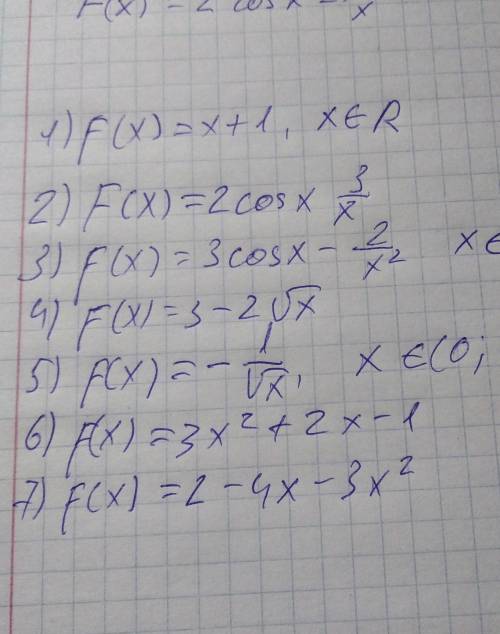 F(x) = 2 cos x - 3/x
1) F(x) = x + 1, x ∈ R
2) F(x) = 2 cos x 3/x
3) f(x) = 3 cos x - 2/x² x ∈
4) F(x) = 3 - 2√x
5) f(x) = - 1/√x, x ∈ (0;
6) F(x) = 3x² + 2x - 1
7) F(x) = 2 - 4x - 3x²